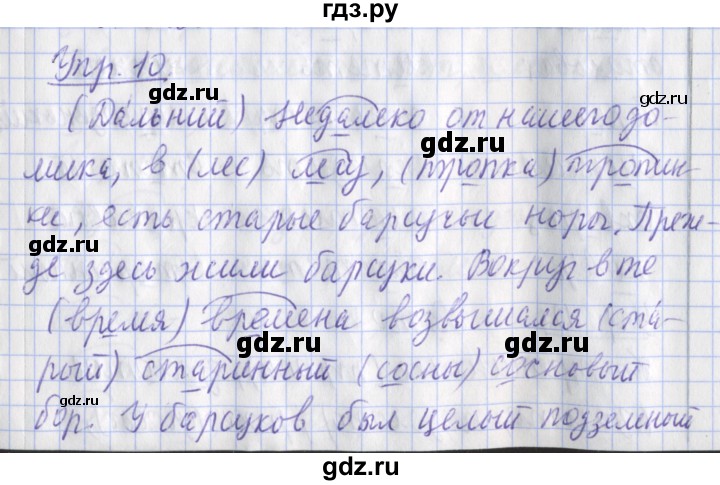 гдз.ру
Упр. 10.
(Да́льний) Недалеко от нашего до-
мика, в (лес) лесу, (тропка) тропин-
ке, есть старые барсучьи норы. Преж-
де здесь жили барсуки. Вокруг в те
(время) времена возвышался (ста́-
рый) старинный (сосны) сосновый
бор. У барсуков был целый подземный
gdz.ru
gdz.ru
gdz.ru
gdz.ru
gdz.ru
gdz.ru
gdz.ru
gdz.ru
gdz.ru
gdz.ru
gdz.ru